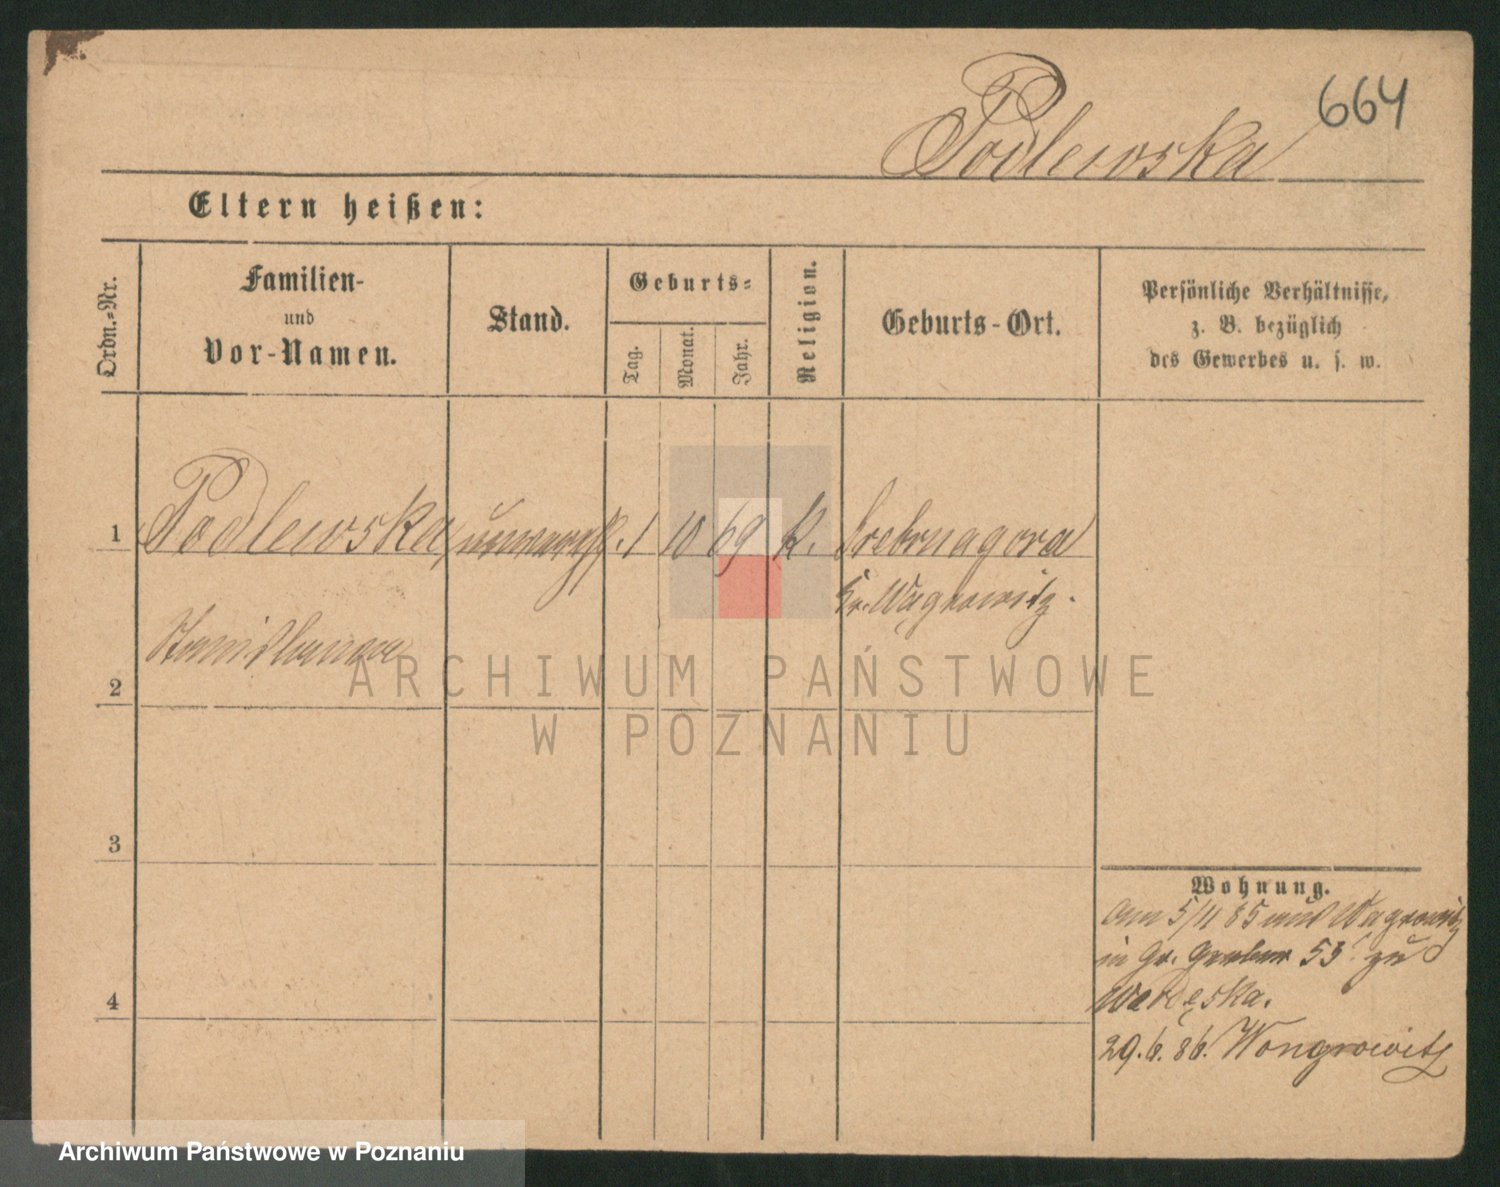 664
Podlewska
Eltern heißen:
Ordn.-Nr.
Familien-
und
Vor-Namen.
Stand.
Geburts-
Tag.
Monat.
Jahr.
Religion.
Geburts-Ort.
Persönliche Verhältnisse,
z. B. bezüglich
des Gewerbes u. s. w.
1
Podlewska, 1 10 69 K. Srebrnagora
Kr. Wągrowitz.
Stanislawa
2
3
4
Wohnung.
Am 5/11 85 aus Wagrowitz
in Gr. Gerber 53 zu
29.6.86. Wongrowitz
ARCHIWUM PAŃSTWOWE
W POZNANIU
Archiwum Państwowe w Poznaniu